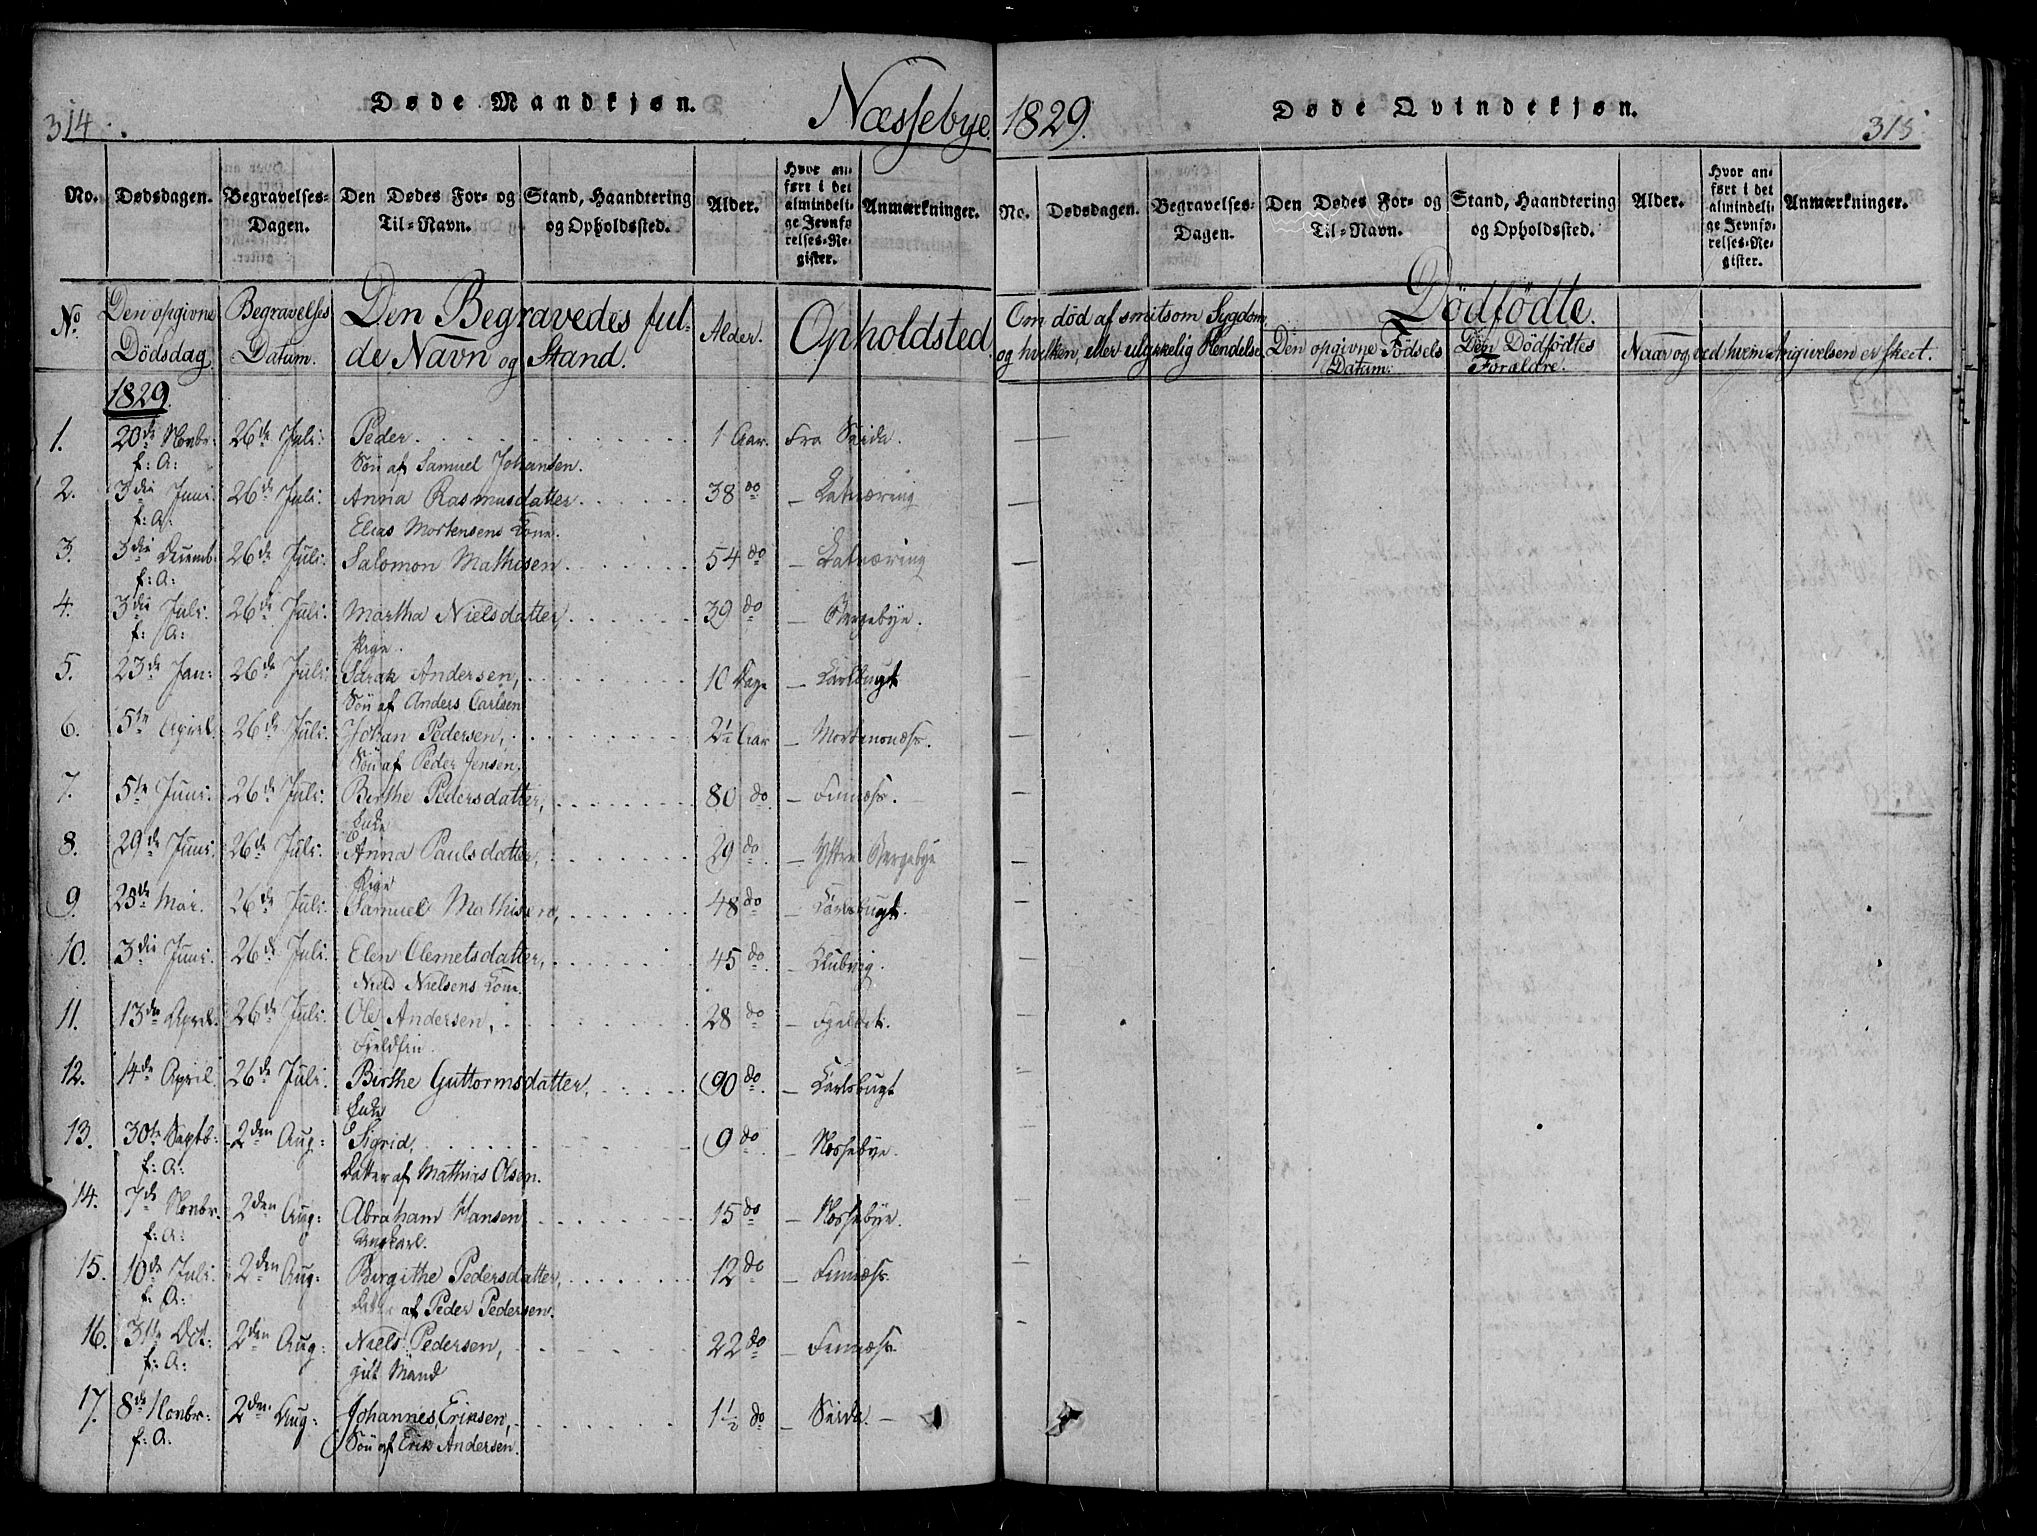 314.
Døde Mandkjøn.
Næssebye
No.
Dødsdagen.
Begravelses-
Dagen.
Den Dødes For- og
Til-Navn.
Stand, Haandtering
og Opholdssted.
Alder.
Hvor an-
ført i det
almindeli-
ge Jevnfø-
relses-Re-
gister.
Anmærkninger.
No.
Den opgivne
Dödsdag
Begravelses
Datum.
Den Begravedes ful-
de Navn og Stand.
Alder.
Opholdsted
1829
1. 20de Novbr: 26de Juli: Peder 1 Aar. Fra Seida.
f: A: Sön af Samuel Johansen.
2. 3die Juni: 26de Juli: Anna Rasmusdatter 38 do —
f: A: Elias Mortensens Kone.
3. 3die Decemb: 26de Juli: Salomon Mathisen 54 do —
f: A:
4. 3die Juli: 26de Juli: Martha Nielsdatter, 39 do — Bergebye.
f: A: Pige.
5. 23de Jan: 26de Juli: Sarak Andersen, 10 Dage — Carlbugt
Sön af Anders Carlsen
6. 5te April. 26de Juli: Johan Pedersen, 2½ Aar — Mortensnæss.
Sön af Peder Jensen.
7. 5te Juni. 26de Juli: Birthe Pedersdatter, 80 do — Finnæss.
Enke
8. 29de Juni: 26de Juli: Anna Paulsdatter, 29 do — Yttre Bergebye
Pige
9. 25de Mai. 26de Juli: Samuel Mathisen, 48 do — Carlsbugt.
10. 3die Juni. 26de Juli: Elen Clemetsdatter, 45 do — Klubvig.
Niels Nielsens Kone.
11. 13de April. 26de Juli: Ole Andersen, 28 do — Fjeldet.
Fjeldfin
12. 14de April. 26de Juli: Birthe Guttormsdatter, 90 do — Carlsbugt
Enke
13. 30te Septb: 2den Aug: Sigrid, 9 do — Næssebye.
f: A: Datter af Mathias Olsen.
14. 7de Novbr. 2den Aug: Abraham Hansen 15 do — Næssebye.
f: A: Ungkarl.
15. 10de Juli: 2den Aug: Birgithe Pedersdatter, 12 do — Finnæss.
f: A: Datter af Peder Pedersen.
16. 31te Oct: 2den Aug: Niels Pedersen, 22 do — Finnæss.
f: A: gift Mand
17. 8de Novbr: 2den Aug: Johannes Eriksen, 1½ do — Seida. —
f: A: Sön af Erik Andersen.
1829.
Døde Qvindekjøn.
315.
No.
Dødsdagen.
Begravelses-
Dagen.
Den Dødes For- og
Til-Navn.
Stand, Haandtering
og Opholdssted.
Alder.
Hvor an-
ført i det
almindeli-
ge Jevnfø-
relses-Re-
gister.
Anmærkninger.
Om död af smitsom Sygdom
og hvilken, eller ulykkelig Hendelse
Dödfödte.
Den opgivne Födsels
Datum.
Den Dödfödtes
Forældre.
Naar og ved hvem Angivelsen er skeet.